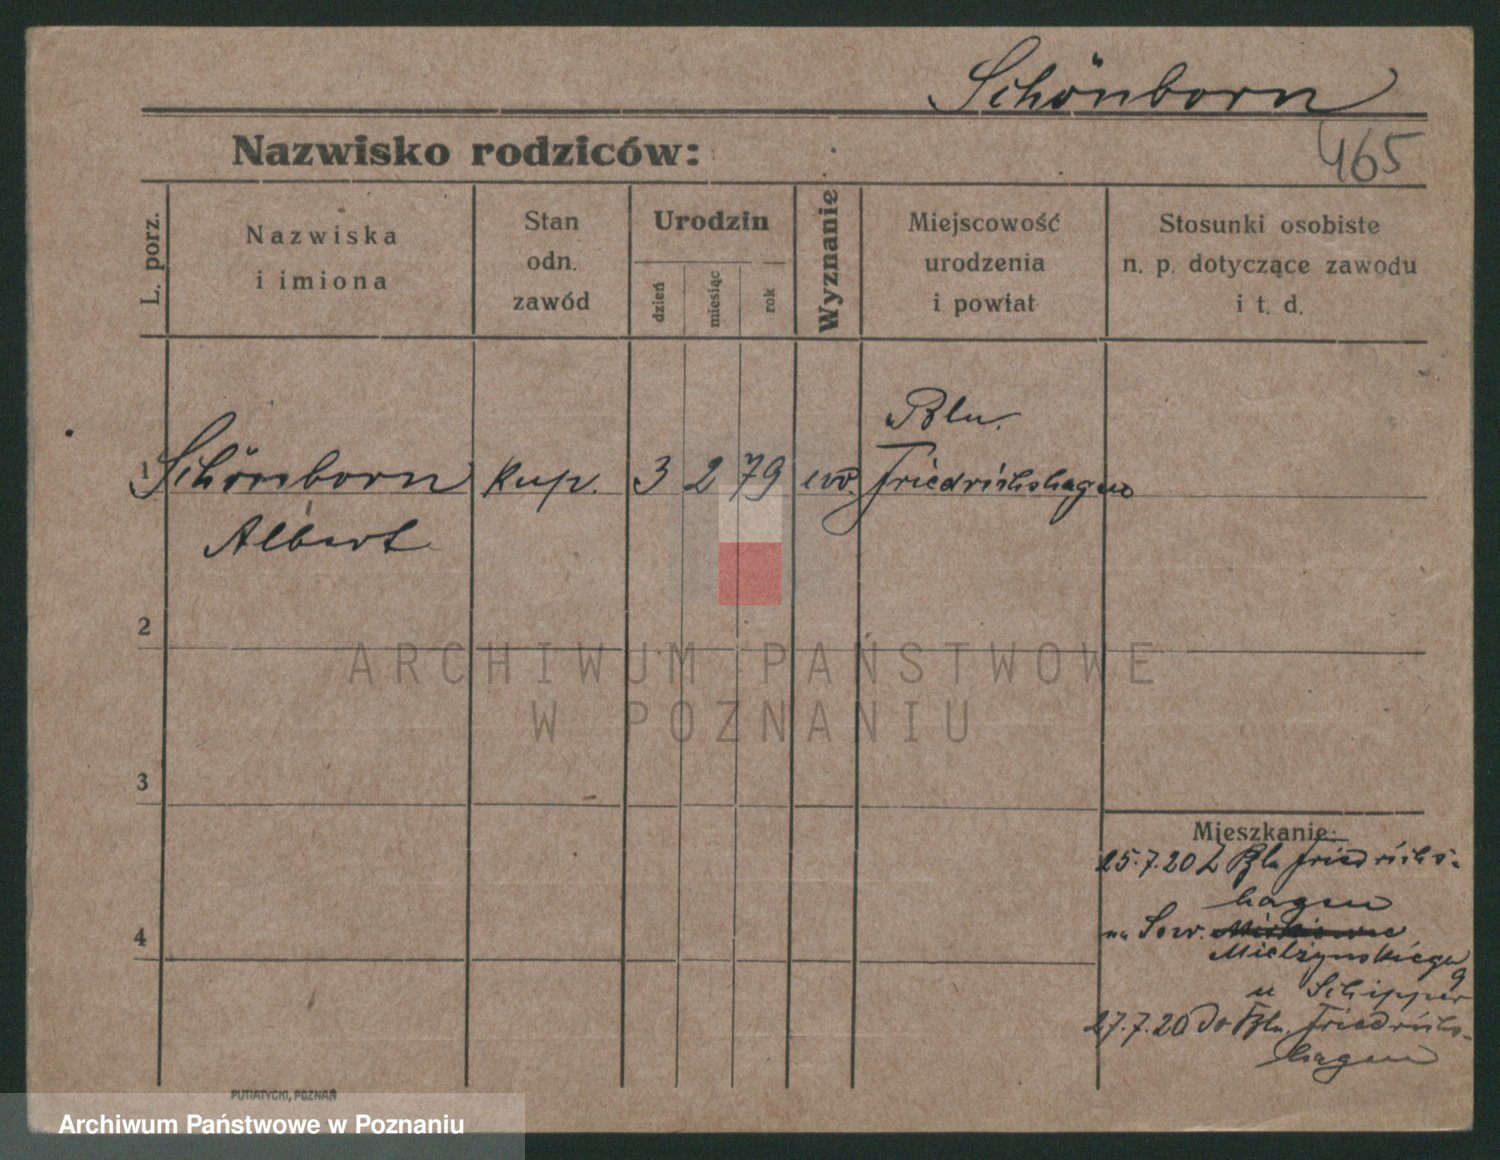 Schönborn
465
Nazwisko rodziców:
L. porz.
Nazwiska
i imiona
Stan
odn.
zawód
Urodzin
dzień
miesiąc
rok
Wyznanie
Miejscowość
urodzenia
i powiat
Stosunki osobiste
n. p. dotyczące zawodu
i t. d.
Bln.
1 Schönborn kup. 3 2 79 Friedrichshagen
Albert
2
ARCHIWUM PAŃSTWOWE
W POZNANIU
3
Mieszkanie:
25.7.20 Z Bln Friedrichs-
hagen
4
na
Mielżynskiego
9
u Schipper
27.7.20 do Bln. Friedrichs-
hagen
PUTIATYCKI, POZNAŃ
Archiwum Państwowe w Poznaniu